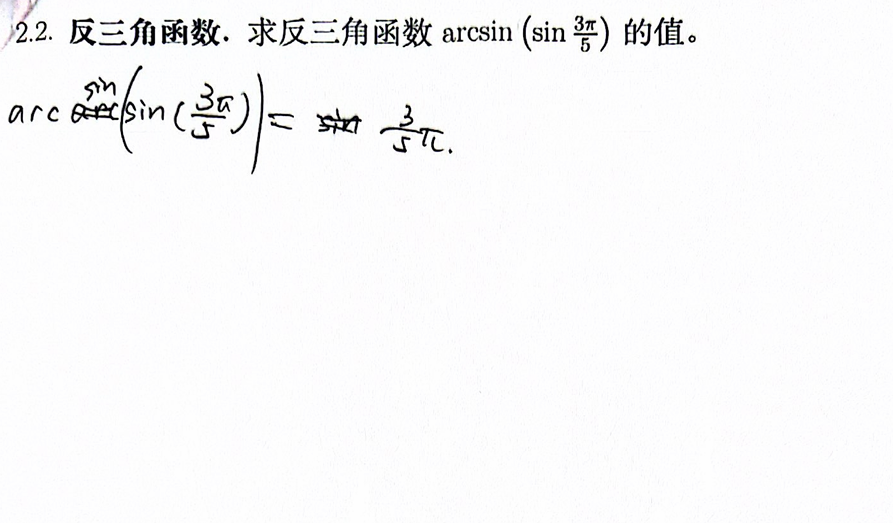 2.2. 反三角函数. 求反三角函数 arcsin (sin 3π/5) 的值。
arc sin (sin (3π/5)) = 3/5 π.